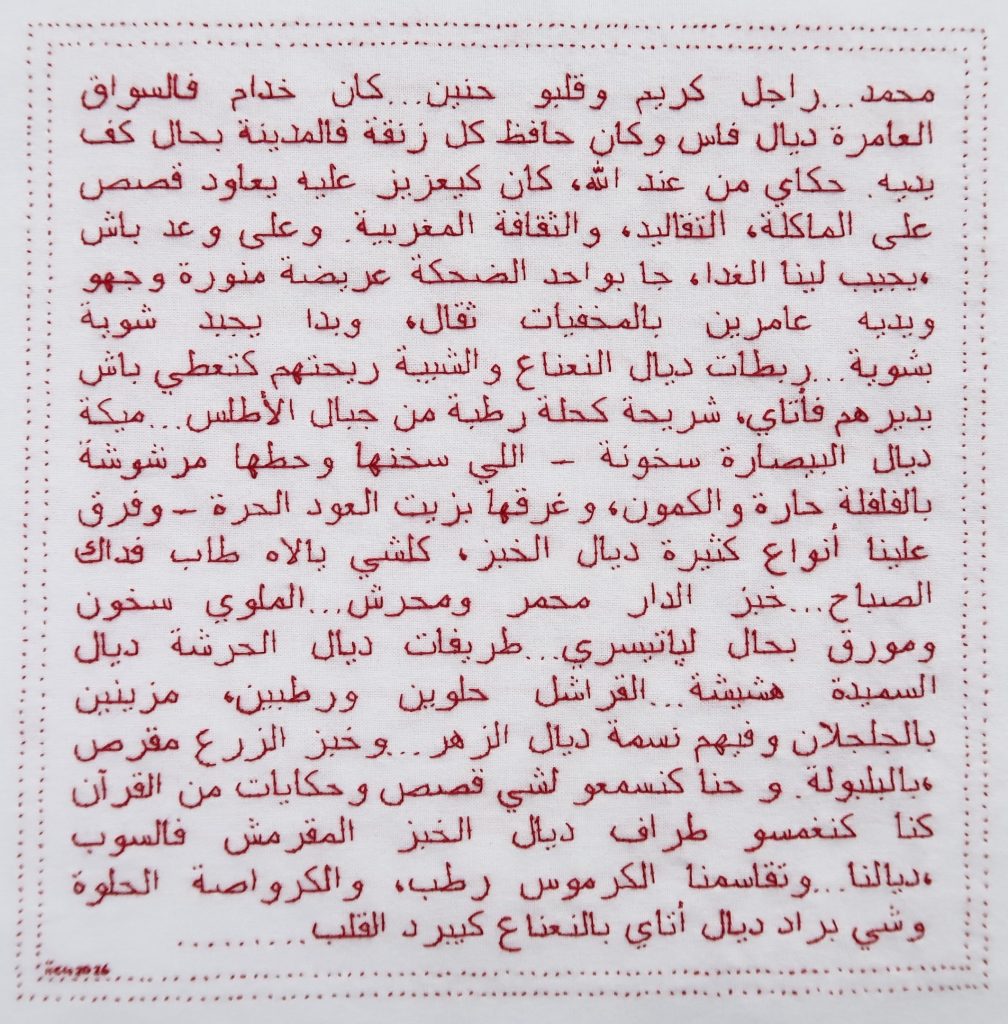 محمد...راجل كريم وقلبو حنين...كان خدام فالسواق
العامرة ديال فاس وكان حافظ كل زنقة فالمدينة بحال كف
يديه. حكاي من عند الله، كان كيعزيز عليه يعاود قصص
على الماكلة، التقاليد، والثقافة المغربية. وعلى وعد باش
،يجيب لينا الغدا، جا بواحد الضحكة عريضة منورة وجهو
ويديه عامرين بالمخفيات ثقال، وبدا يجبد شوية
بشوية...ربطات ديال النعناع والشيبة ريحتهم كتعطي باش
يديرهم فأتاي، شريحة كحلة رطبة من جبال الأطلس...ميكة
ديال البيصارة سخونة - اللي سخنها وحطها مرشوشة
بالفلفلة حارة والكمون، وغرقها بزيت العود الحرة - وفرق
علينا أنواع كثيرة ديال الخبز، كلشي بالاه طاب فداك
الصباح...خبز الدار محمر ومحرش...الملوي سخون
ومورق بحال لپاتيسري...طريفات ديال الحرشة ديال
السميدة هشيشة...القراشل حلوين ورطبين، مزينين
بالجلجلان وفيهم نسمة ديال الزهر...وخبز الزرع مقرص
،بالبلبولة. و حنا كنسمعو لشي قصص وحكايات من القرآن
كنا كنغمسو طراف ديال الخبز المقرمش فالسوب
،ديالنا...وتقاسمنا الكرموس رطب، والكرواصة الحلوة
وشي براد ديال أتاي بالنعناع كيبرد القلب..........
2026